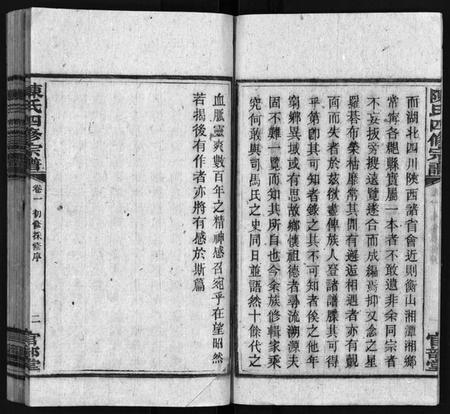 陳氏四修宗譜
而湖北四川陝西諸省會近則衡山湘潭湘鄉
常甯各縣實屬一本者不敢遺非余同宗者
不妄扳旁搜遠覽遂合而成編焉抑又念之星
羅碁布榮枯靡常其間有邂逅相遇者亦有覿
面而失者於茲獻畫俾族人登諸譜牒其可得
乎第卽其可知者錄之其不可知者後之他年
窮鄉異域或有思故鄉懷祖德者尋流溯源夫
固不難一覽而知其所自也今余族修輯家乘
究何敢與司馬氏之史同日並語然十餘代之
官部堂
血脈靈爽數百年之精神感召宛乎在望昭然
若揭後有作者亦將有感於斯篇
陳氏四修宗譜
卷一
初修採修序
二
官部堂